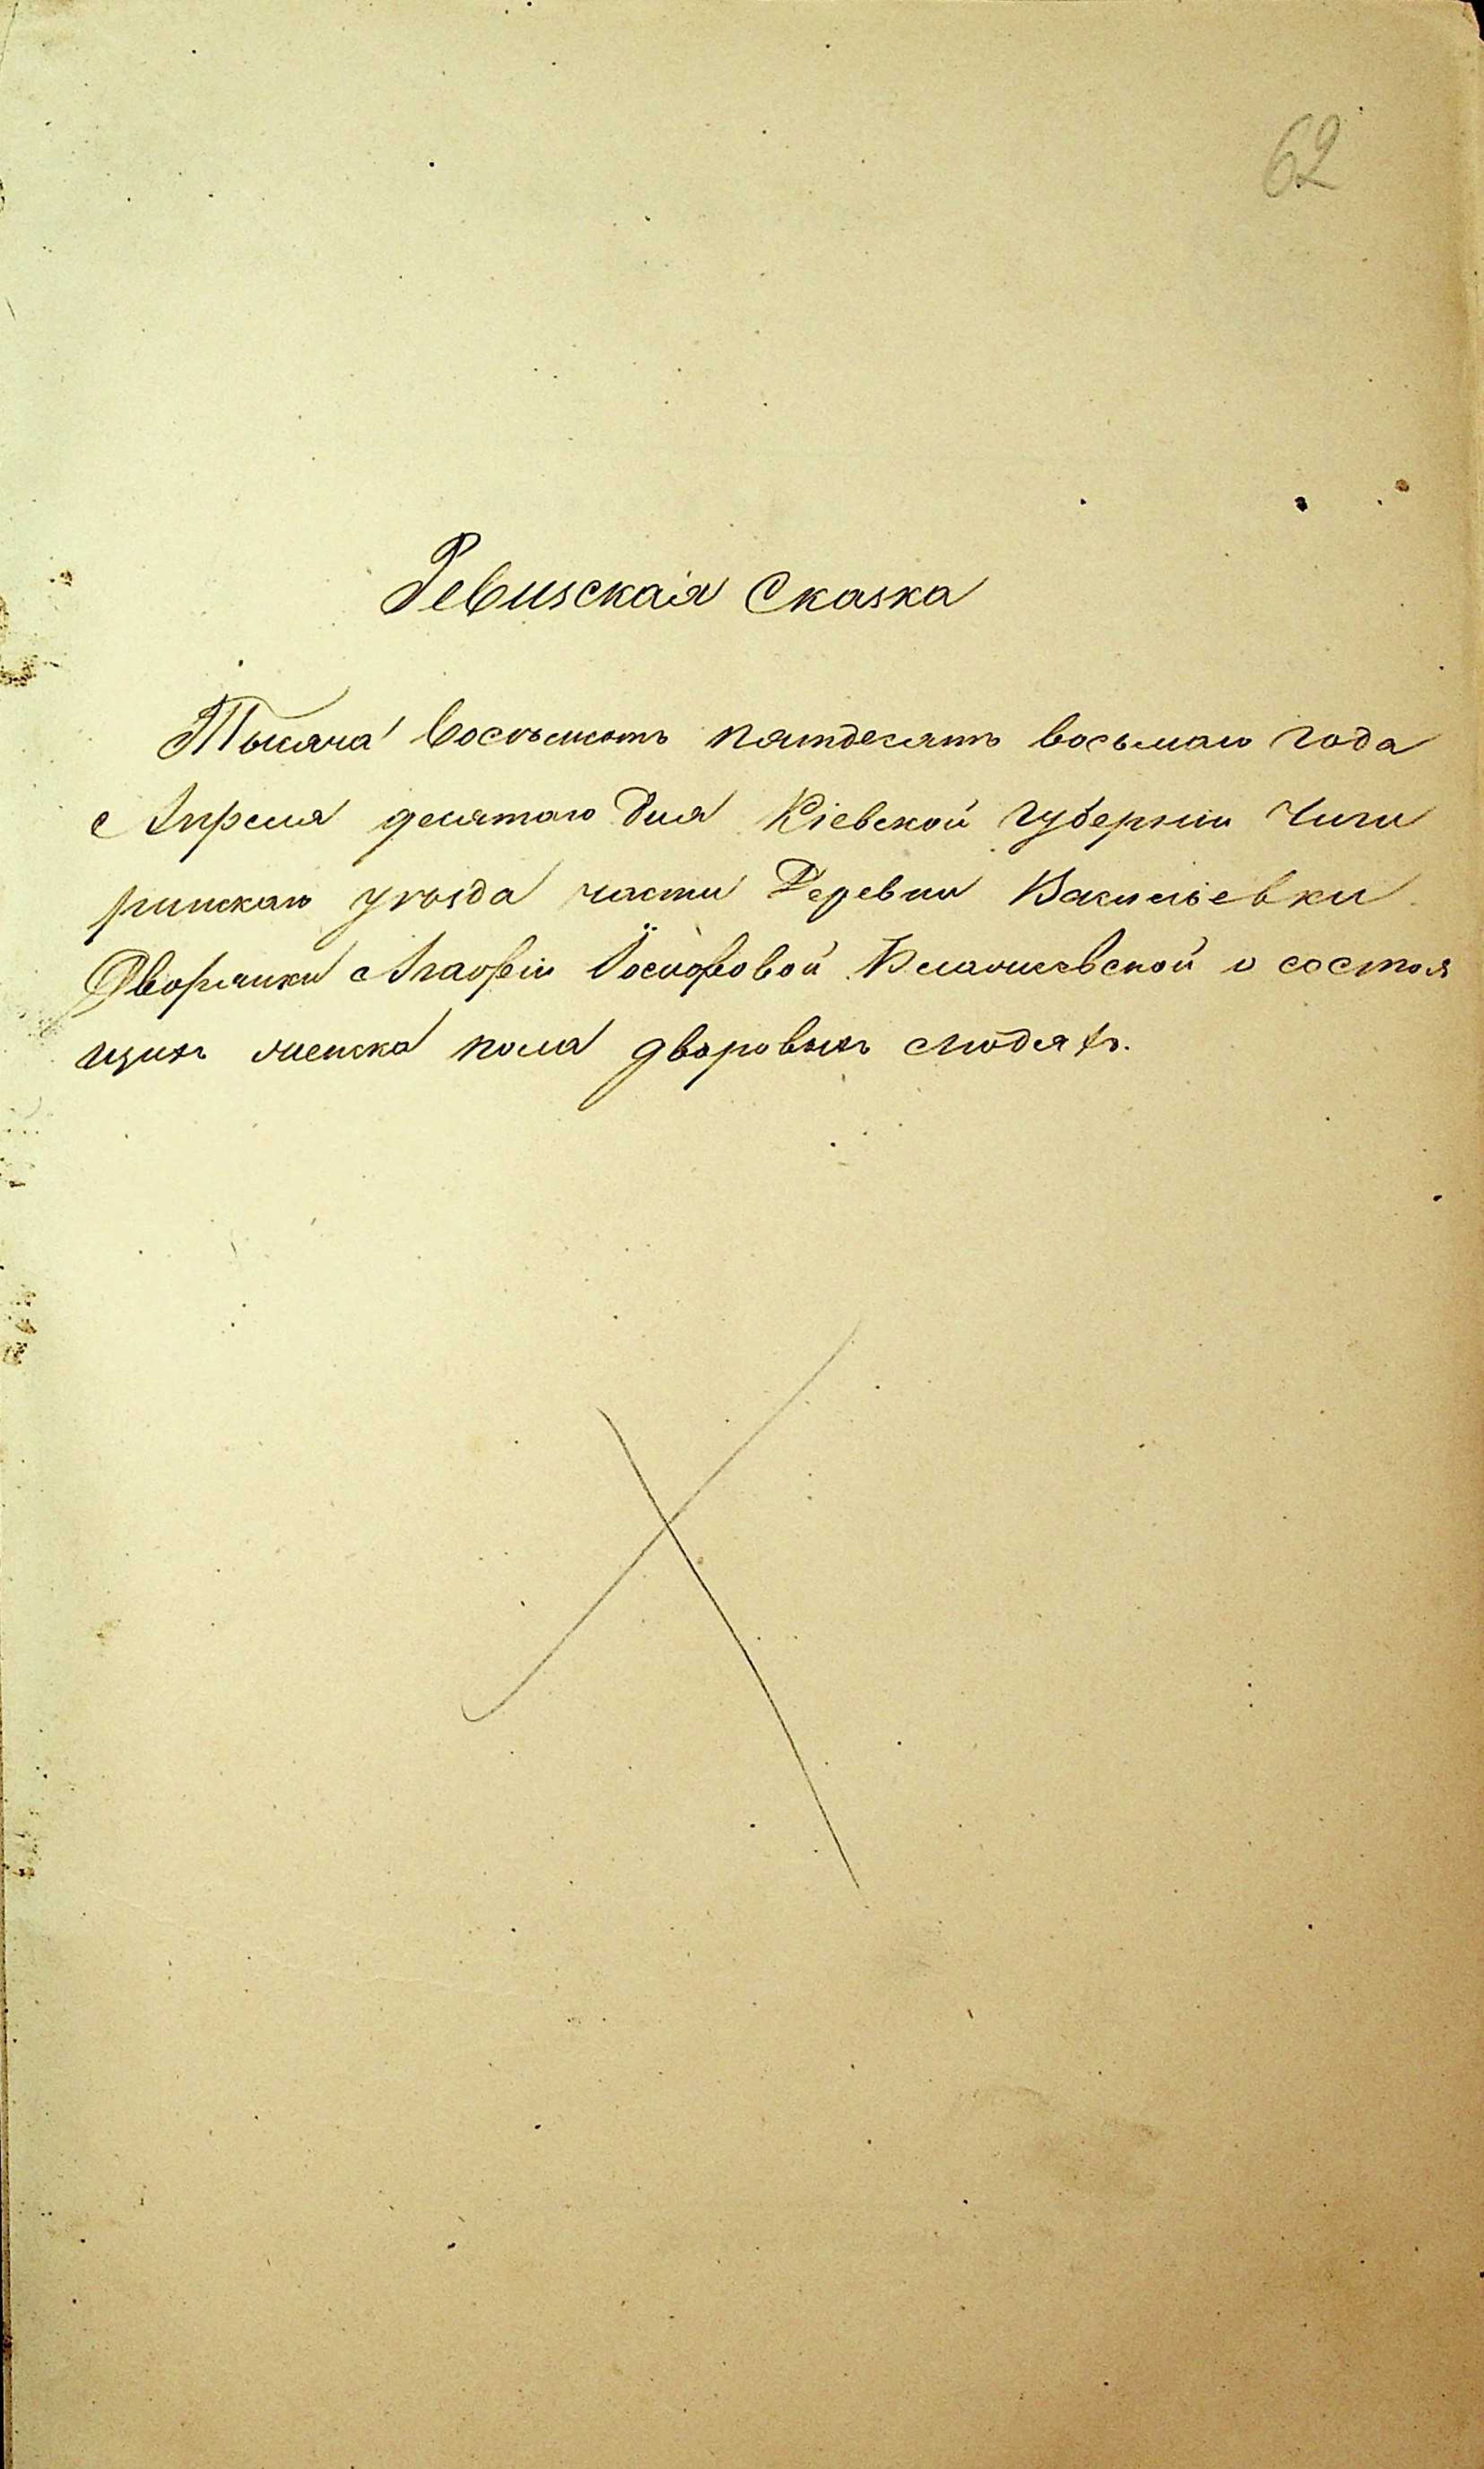 62
Ревизская Сказка
Тысяча восемьсотъ пятдесятъ восьмаго года
Апреля десятаго дня Кіевской губерніи Чиги
ринскаго уѣзда части Деревни Васильевки
Дворянки Агафіи Іосифовой о состоя
щихъ женска пола дворовыхъ людяхъ.